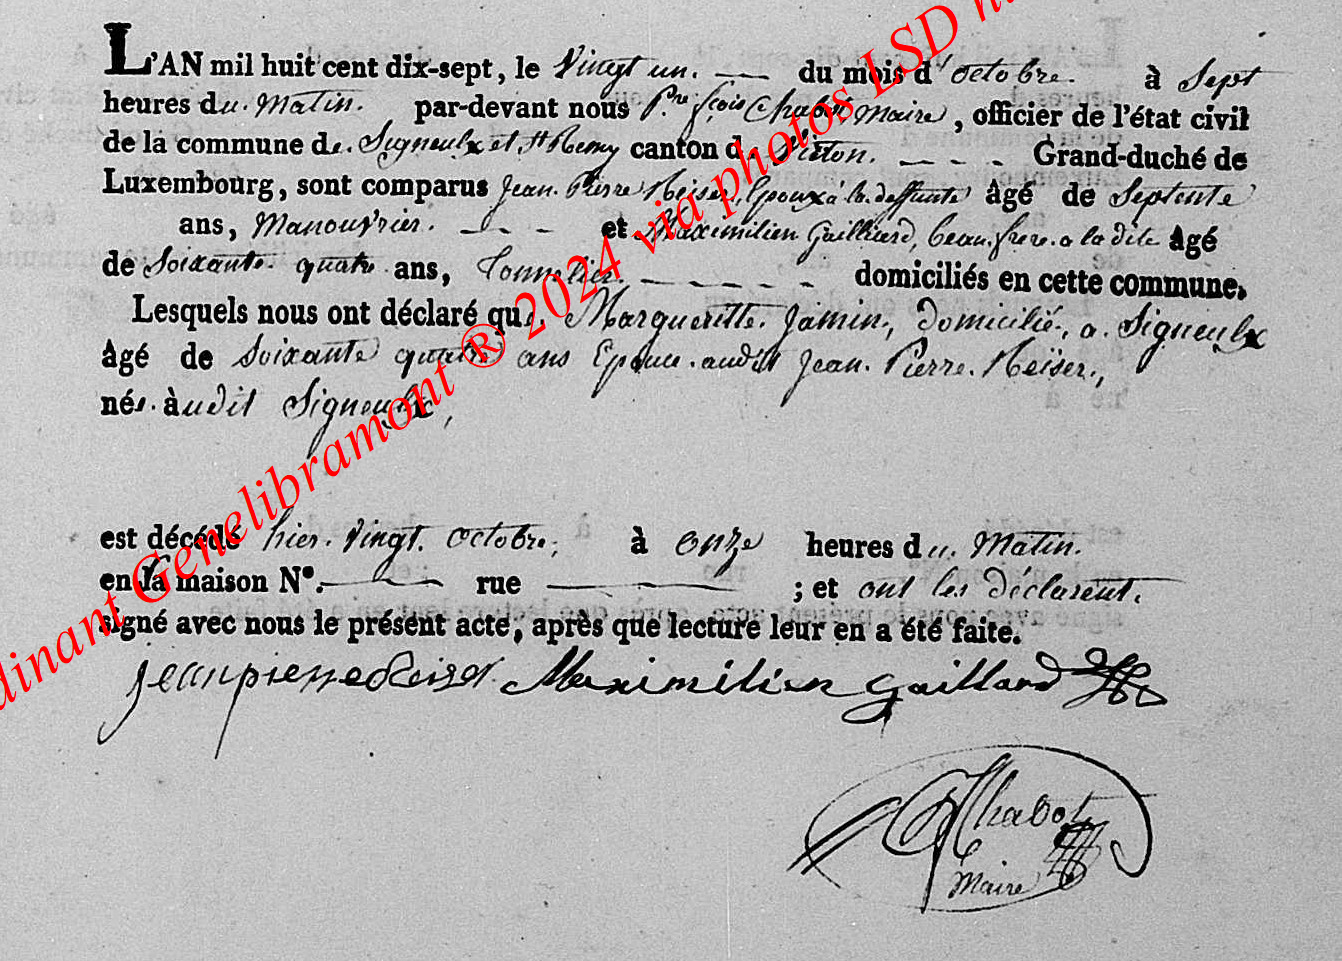 L'AN mil huit cent dix-sept, le Vingt un. — du mois d'octobre. à Sept
heures du. Matin. par-devant nous P.re fçois Chabot, Maire, officier de l'état civil
de la commune de. Signeulx et St Remy canton de Virton. - - - - Grand-duché de
Luxembourg, sont comparus Jean. Pierre Reiser, Epoux à la deffunte Âgé de Septente
ans, Manouvrier. - - - et Maximilien Gailliard, beau. frere. a la dite Âgé
de Soixante. quatre ans, Tonnelier. - - - - - - domiciliés en cette commune.
Lesquels nous ont déclaré que. Margueritte. Jamin, domicilié, a. Signeulx
Âgé de Soixante quatre ans Epouse. audit Jean. Pierre. Reiser.,
née. àudit Signeulx,
est décédé hier. Vingt. octobre, à onze heures du. Matin.
en la maison N°. — rue — ; et ont les déclarent.
signé avec nous le présent acte, après que lecture leur en a été faite.
jeanpierre Reiser Maximilien Gaillard
Chabot
Maire
dinant Genelibramont ® 2024 via photos LSD